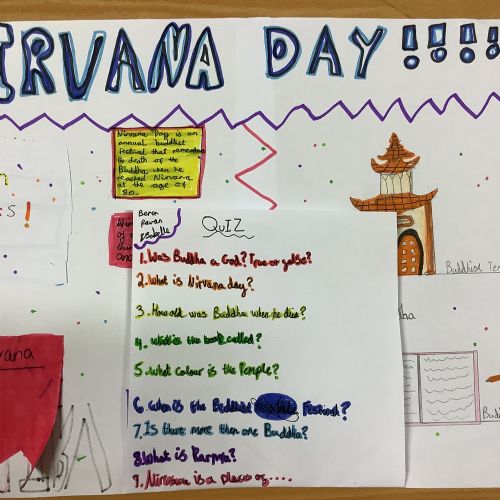 IRVANA DAY !!!!
Nirvana Day is an
annual buddhist
festival that remembers
the death of the
Buddha when he
reached Nirvana
at the age of
80.
s!
Beren
Pavan
Isabelle
QUIZ
1. Was Buddha a God? True or galse?
2. What is Nirvana day?
3. How old was Buddha when he died?
4. What is the book called?
5. What colour is the Temple?
6. When is the Buddhist Festival?
7. Is there more then one Buddha?
8. What is Karma?
9. Nirvana is a place of....
Buddhist Te
ha
Bud
vana